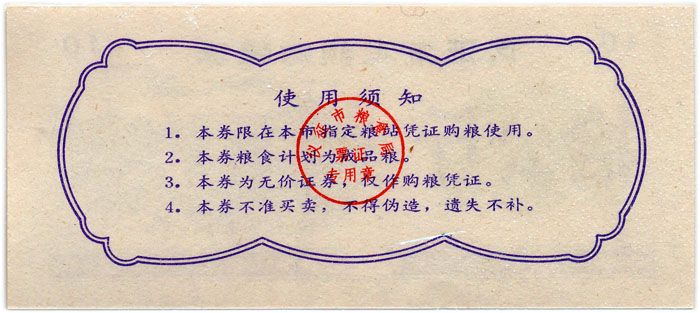 使用须知
1. 本券限在本市指定粮站凭证购粮使用。
2. 本券粮食计划为成品粮。
3. 本券为无价证券,仅作购粮凭证。
4. 本券不准买卖,不得伪造,遗失不补。
市粮食局
票证
专用章